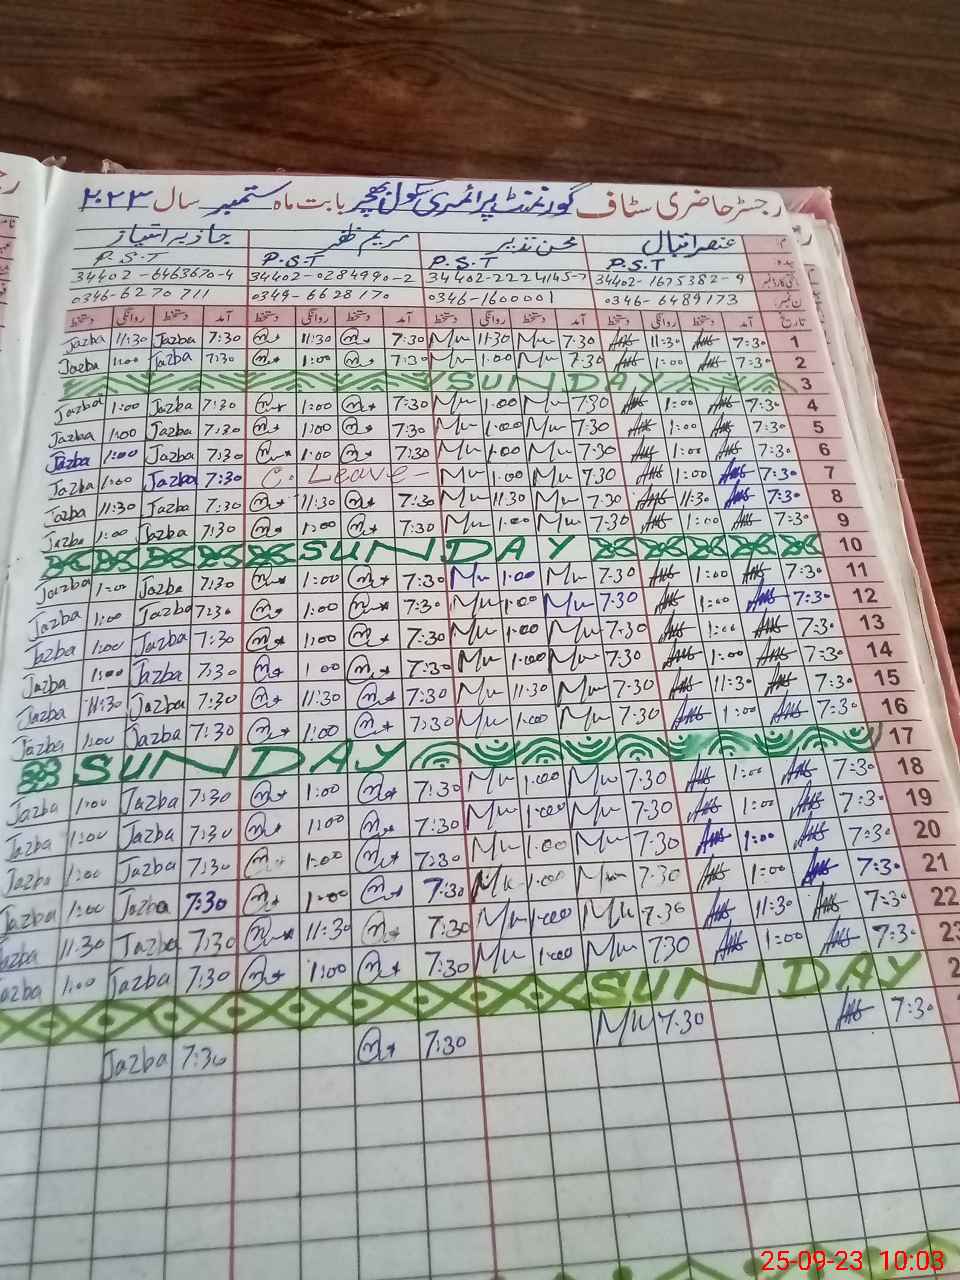 رجسٹر حاضری سٹاف گورنمنٹ پرائمری سکول بابت ماہ ستمبر سال ۲۰۲۳
عنصر اقبال محسن نذیر مریم ظفر جاذبہ امتیاز
P.S.T P.S.T P.S.T P.S.T
34402-1675382-9 34402-2224145-7 34402-0284990-2 34402-6463670-4
0346-6489173 0346-1600001 0349-6628170 0346-6270711
تاریخ آمد دستخط روانگی دستخط آمد دستخط روانگی دستخط آمد دستخط روانگی دستخط آمد دستخط روانگی دستخط
Jazba 11:30 Jazba 7:30 11:30 7:30 11:30 7:30 11:30 7:30 1
Jazba 1:00 Jazba 7:30 1:00 7:30 1:00 7:30 1:00 7:30 2
SUNDAY 3
Jazba 1:00 Jazba 7:30 1:00 7:30 1:00 7:30 1:00 7:30 4
Jazba 1:00 Jazba 7:30 1:00 7:30 1:00 7:30 1:00 7:30 5
Jazba 1:00 Jazba 7:30 1:00 7:30 1:00 7:30 1:00 7:30 6
Jazba 1:00 Jazba 7:30 C. Leave 1:00 7:30 1:00 7:30 7
Jazba 11:30 Jazba 7:30 11:30 7:30 11:30 7:30 11:30 7:30 8
Jazba 1:00 Jazba 7:30 1:00 7:30 1:00 7:30 1:00 7:30 9
SUNDAY 10
Jazba 1:00 Jazba 7:30 1:00 7:30 1:00 7:30 1:00 7:30 11
Jazba 1:00 Jazba 7:30 1:00 7:30 1:00 7:30 1:00 7:30 12
Jazba 1:00 Jazba 7:30 1:00 7:30 1:00 7:30 1:00 7:30 13
Jazba 1:00 Jazba 7:30 1:00 7:30 1:00 7:30 1:00 7:30 14
Jazba 11:30 Jazba 7:30 11:30 7:30 11:30 7:30 11:30 7:30 15
Jazba 1:00 Jazba 7:30 1:00 7:30 1:00 7:30 1:00 7:30 16
SUNDAY 17
Jazba 1:00 Jazba 7:30 1:00 7:30 1:00 7:30 1:00 7:30 18
Jazba 1:00 Jazba 7:30 1:00 7:30 1:00 7:30 1:00 7:30 19
Jazba 1:00 Jazba 7:30 1:00 7:30 1:00 7:30 1:00 7:30 20
Jazba 1:00 Jazba 7:30 1:00 7:30 1:00 7:30 1:00 7:30 21
Jazba 11:30 Jazba 7:30 11:30 7:30 1:00 7:30 11:30 7:30 22
Jazba 1:00 Jazba 7:30 1:00 7:30 1:00 7:30 1:00 7:30 23
SUNDAY 2
Jazba 7:30 7:30 7:30 7:30
25-09-23 10:03